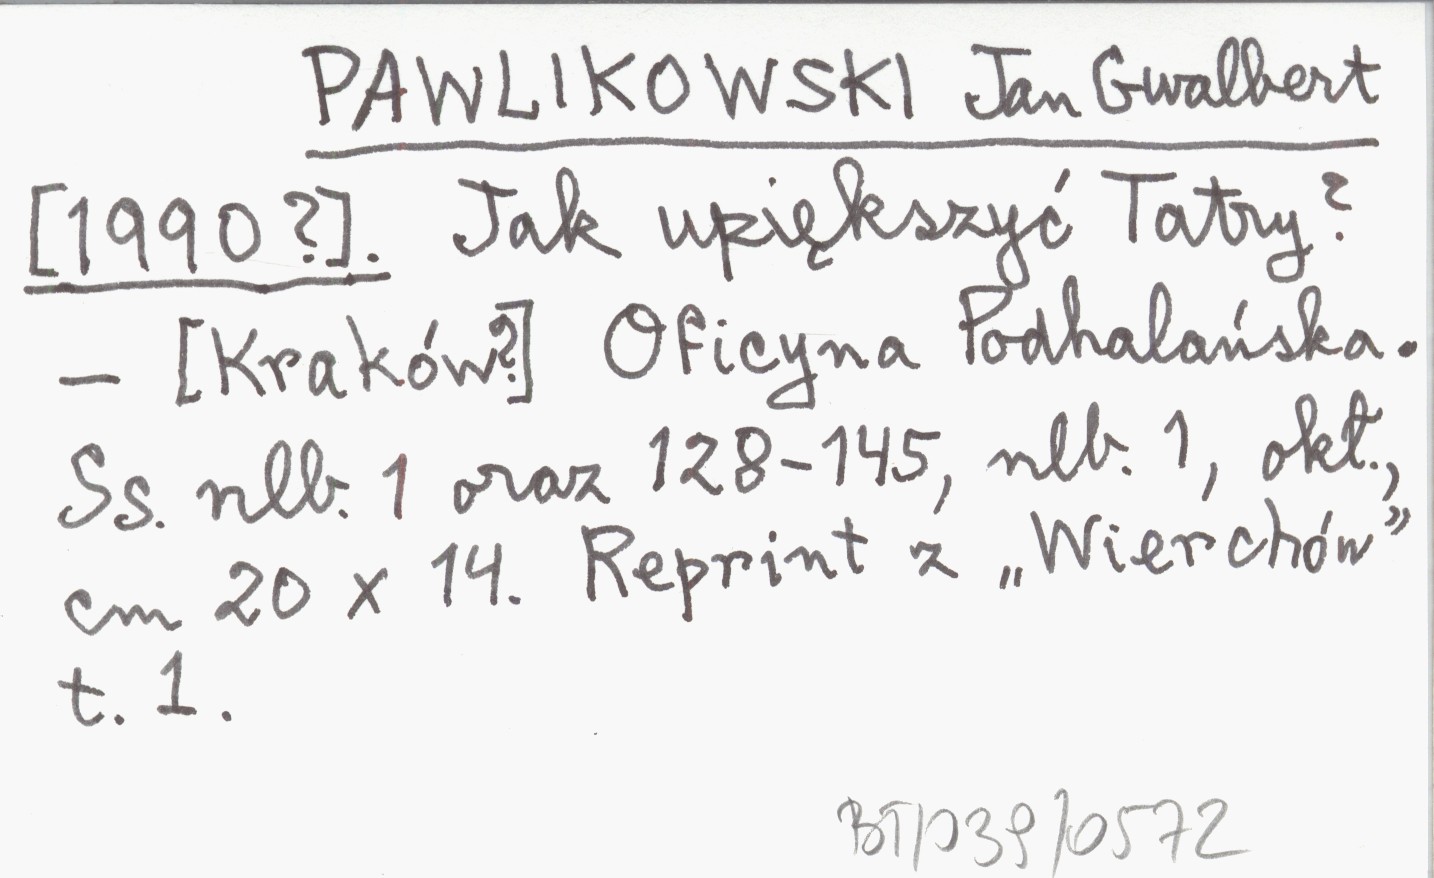 PAWLIKOWSKI Jan Gwalbert
[1990?]. Jak upiększyć Tatry?
– [Kraków?] Oficyna Podhalańska.
Ss. nlb. 1 oraz 128-145, nlb. 1, okł.,
cm 20 x 14. Reprint z „Wierchów”
t. 1.
BT/039/0572